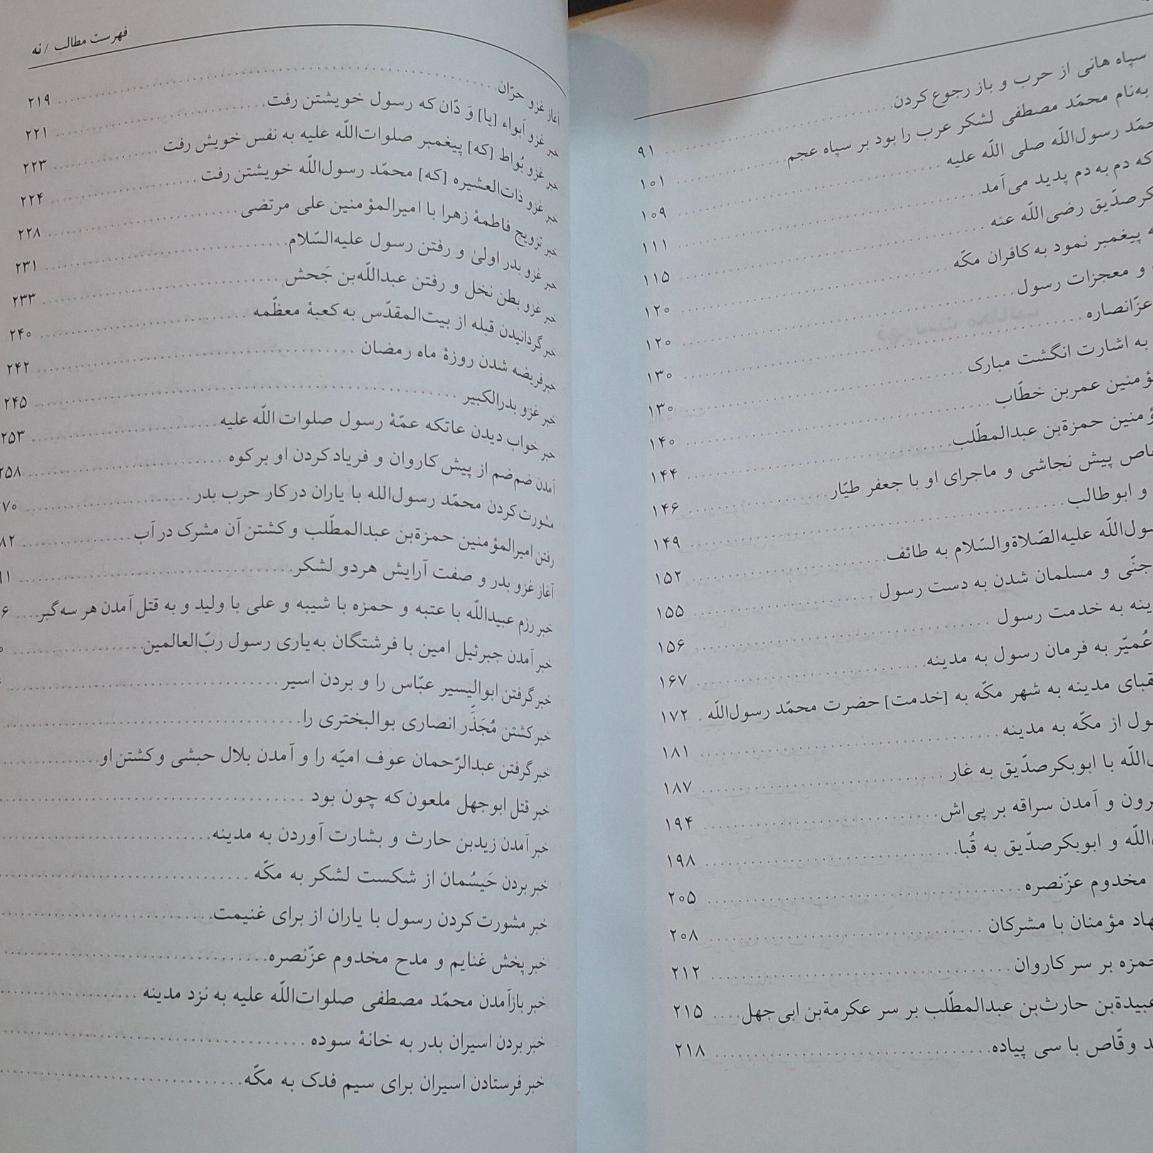 سپاه هانی از حرب و باز رجوع کردن ۹۱
به‌نام محمّد مصطفی لشکر عرب را بود بر سپاه عجم ۱۰۱
محمّد رسول‌اللّه صلی اللّه علیه ۱۰۹
که دم به دم پدید می‌آمد ۱۱۱
صدّیق رضی‌اللّه عنه ۱۱۵
پیغمبر نمود به کافران مکّه ۱۲۰
و معجزات رسول ۱۲۰
عزّانصاره ۱۳۰
به اشارت انگشت مبارک ۱۳۰
عمربن خطّاب ۱۴۰
حمزةبن عبدالمطّلب ۱۴۴
پیش نجاشی و ماجرای او با جعفر طیّار ۱۴۶
و ابوطالب ۱۴۹
علیه‌الصّلاةوالسّلام به طائف ۱۵۲
جنّی و مسلمان شدن به دست رسول ۱۵۵
به خدمت رسول ۱۵۶
به فرمان رسول به مدینه ۱۶۷
مدینه به شهر مکّه به [خدمت] حضرت محمّد رسول‌اللّه ۱۷۲
از مکّه به مدینه ۱۸۱
با ابوبکر صدّیق به غار ۱۸۷
و آمدن سراقه بر پی‌اش ۱۹۴
و ابوبکر صدّیق به قُبا ۱۹۸
مخدوم عزّنصره ۲۰۵
مؤمنان با مشرکان ۲۰۸
بر سر کاروان ۲۱۲
عبیدةبن حارث‌بن عبدالمطّلب بر سر عکرمةبن ابی جهل ۲۱۵
وقّاص با سی پیاده ۲۱۸
فهرست مطالب / نه
آغاز غزو حرّان ۲۱۹
خبر غزو اَبواء [یا] وَ دّان که رسول خویشتن رفت ۲۲۱
خبر غزو بُواط [که] پیغمبر صلوات‌اللّه علیه به نفس خویش رفت ۲۲۳
خبر غزو ذات‌العشیره [که] محمّد رسول‌اللّه خویشتن رفت ۲۲۴
خبر تزویج فاطمۀ زهرا با امیرالمؤمنین علی مرتضی ۲۲۸
خبر غزو بدر اولیٰ و رفتن رسول علیه‌السّلام ۲۳۱
خبر غزو بطن نخل و رفتن عبداللّه‌بن جَحش ۲۳۳
خبر گردانیدن قبله از بیت‌المقدّس به کعبۀ معظّمه ۲۴۰
خبر فریضه شدن روزۀ ماه رمضان ۲۴۲
خبر غزو بدرالکبیر ۲۴۵
خبر خواب دیدن عاتکه عمّۀ رسول صلوات اللّه علیه ۲۵۳
آمدن ضم‌ضم از پیش کاروان و فریاد کردن او بر کوه
مشورت کردن محمّد رسول‌الله با یاران در کار حرب بدر
رفتن امیرالمؤمنین حمزةبن عبدالمطّلب و کشتن آن مشرک در آب
آغاز غزو بدر و صفت آرایش هر دو لشکر
خبر رزم عبیداللّه با عتبه و حمزه با شیبه و علی با ولید و به قتل آمدن هر سه گبر
خبر آمدن جبرئیل امین با فرشتگان به‌یاری رسول ربّ‌العالمین
خبر گرفتن ابوالیسیر عبّاس را و بردن اسیر
خبر کشتن مُجَذَّر انصاری بوالبختری را
خبر گرفتن عبدالرّحمان عوف امیّه را و آمدن بلال حبشی و کشتن او
خبر قتل ابوجهل ملعون که چون بود
خبر آمدن زیدبن حارث و بشارت آوردن به مدینه
خبر بردن حَیسُمان از شکست لشکر به مکّه
خبر مشورت کردن رسول با یاران از برای غنیمت
خبر پخش غنایم و مدح مخدوم عزّنصره
خبر بازآمدن محمّد مصطفی صلوات‌اللّه علیه به نزد مدینه
خبر بردن اسیران بدر به خانۀ سوده
خبر فرستادن اسیران برای سیم فدک به مکّه